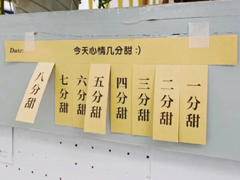 Date:
今天心情几分甜 :)
八分甜
七分甜
六分甜
五分甜
四分甜
三分甜
二分甜
一分甜